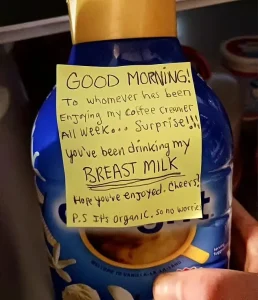 GOOD MORNING!
To whomever has been
Enjoying my coffee creamer
All Week... Surprise!!!
you've been drinking my
BREAST MILK
Hope you've enjoyed. Cheers!
P.S It's Organic. so no worries